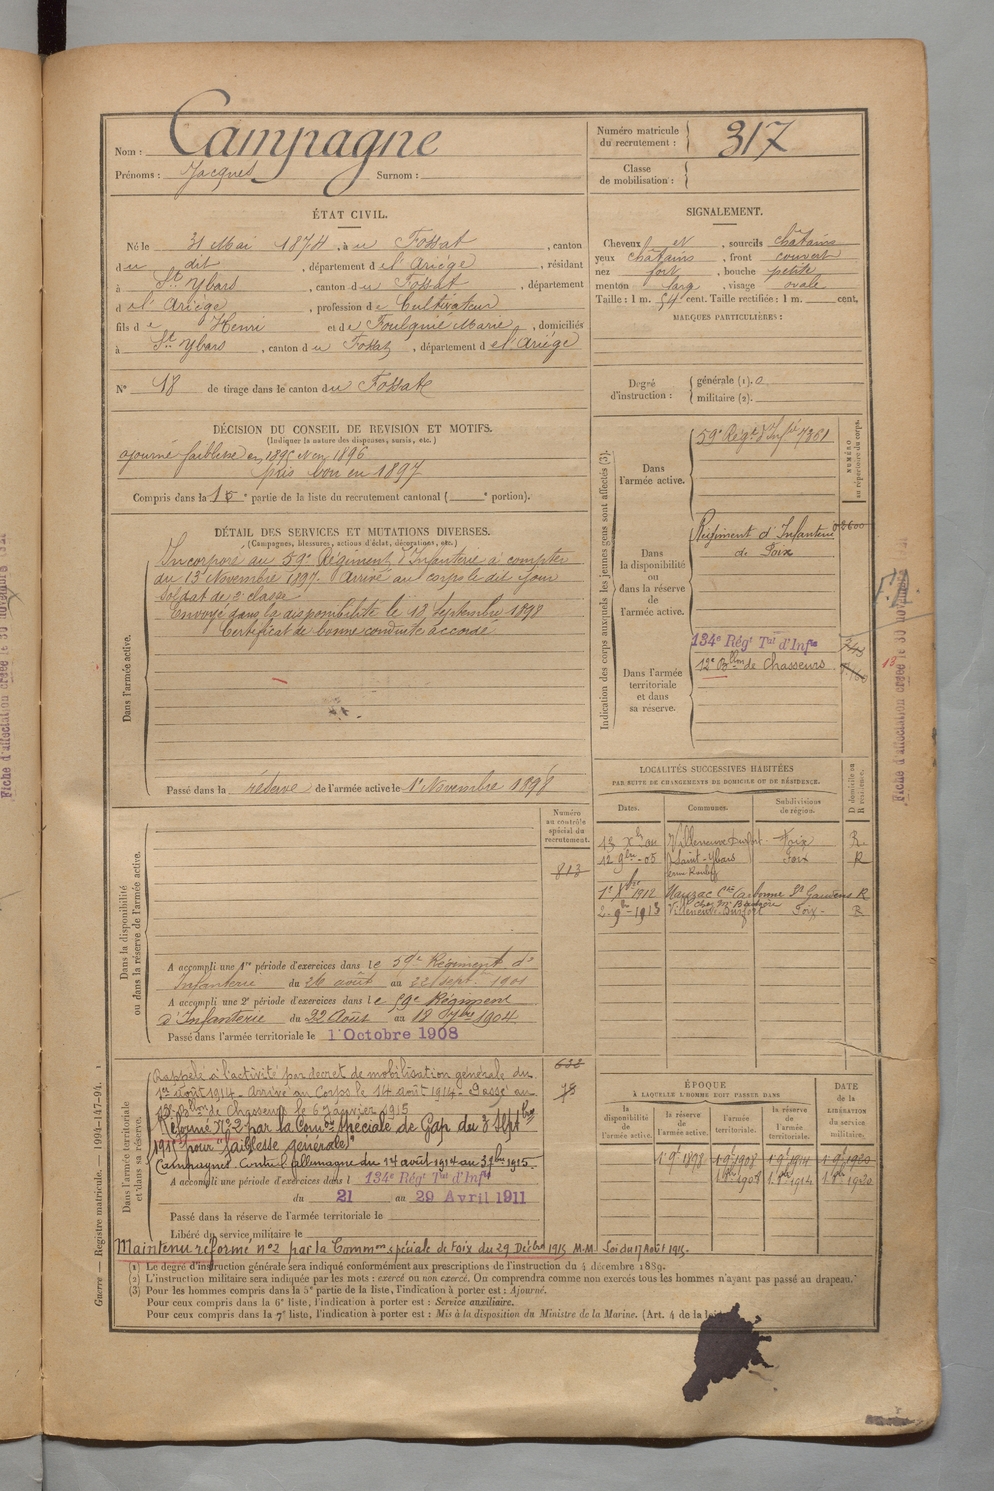 Nom : Campagne
Prénoms : Jacques Surnom :
Numéro matricule du recrutement : 317
Classe de mobilisation :
ÉTAT CIVIL.
Né le 31 Mai 1874, à u Fossat, canton
du dit, département de l'Ariège, résidant
à St Ybars, canton du Fossat, département
de l'Ariège, profession de Cultivateur
fils de Henri et de Foulquié Marie, domiciliés
à St Ybars, canton du Fossat, département de l'Ariège
N° 18 de tirage dans le canton du Fossat
SIGNALEMENT.
Cheveux et, sourcils châtains
yeux châtains, front couvert
nez fort, bouche petite
menton large, visage ovale
Taille : 1 m. 54 cent. Taille rectifiée : 1 m. cent,
MARQUES PARTICULIÈRES :
Degré d'instruction : générale (1).
militaire (2).
DÉCISION DU CONSEIL DE REVISION ET MOTIFS.
(Indiquer la nature des dispenses, sursis, etc.)
ajourné faiblesse en 1895 et en 1896
pris bon en 1897
Compris dans la 1e partie de la liste du recrutement cantonal ( e portion).
DÉTAIL DES SERVICES ET MUTATIONS DIVERSES.
(Campagnes, blessures, actions d'éclat, décorations, etc.)
Dans l'armée active.
Incorporé au 59e Régiment d'Infanterie à compter
du 13 Novembre 1897. Arrivé au corps le dit jour
soldat de 2e classe
Envoyé dans la disponibilité le 18 Septembre 1898
Certificat de bonne conduite accordé
Passé dans la réserve de l'armée active le 1er Novembre 1898
Indication des corps auxquels les jeunes gens sont affectés (3).
NUMÉRO au répertoire du corps.
Dans l'armée active.
59e Régt d'Infie 7361
Dans la disponibilité ou dans la réserve de l'armée active.
Régiment d'Infanterie
de Foix
Dans l'armée territoriale et dans sa réserve.
134e Régt Tal d'Infie
12e Bllon de Chasseurs
LOCALITÉS SUCCESSIVES HABITÉES
PAR SUITE DE CHANGEMENTS DE DOMICILE OU DE RÉSIDENCE.
Dates. Communes. Subdivisions de région. D domicile ou R résidence.
Villeneuve Durfort Foix R
12 9bre 05 Saint-Ybars Foix R
1912 Mauzac Cne Carbonne St Gaudens R
2 9bre 1913 Villeneuve-Durfort Foix R
Dans la disponibilité ou dans la réserve de l'armée active.
Numéro au contrôle spécial du recrutement.
813
A accompli une 1re période d'exercices dans le 59e Régiment d'
Infanterie du 26 août au 22 sept. 1901
A accompli une 2e période d'exercices dans le 59e Régiment
d'Infanterie du 22 Août au 18 7bre 1904
Passé dans l'armée territoriale le 1er Octobre 1908
Dans l'armée territoriale et dans sa réserve.
Rappelé à l'activité par décret de mobilisation générale du
1er août 1914. Arrivé au Corps le 14 août 1914. Passé au
12e Bllon de Chasseurs le 6 janvier 1915
Réformé N° 2 par la Comon spéciale de Gap du 3 Septbre
1915 pour "faiblesse générale"
Campagnes. Contre l'Allemagne du 14 août 1914 au 3 7bre 1915.
A accompli une période d'exercices dans l 134e Régt Tal d'Infie
du 21 au 29 Avril 1911
Passé dans la réserve de l'armée territoriale le
Libéré du service militaire le
Maintenu réformé n°2 par la Common spéciale de Foix du 29 Décbre 1915 M.M. Loi du 17 Août 1915.
ÉPOQUE
À LAQUELLE L'HOMME DOIT PASSER DANS
la disponibilité de l'armée active. la réserve de l'armée active. l'armée territoriale. la réserve de l'armée territoriale.
DATE de la LIBÉRATION du service militaire.
1er 9bre 1898 1er 9bre 1908 1er 9bre 1914 1er 9bre 1920
(1) Le degré d'instruction générale sera indiqué conformément aux prescriptions de l'instruction du 4 décembre 1889.
(2) L'instruction militaire sera indiquée par les mots : exercé ou non exercé. On comprendra comme non exercés tous les hommes n'ayant pas passé au drapeau.
(3) Pour les hommes compris dans la 5e partie de la liste, l'indication à porter est : Ajourné.
Pour ceux compris dans la 6e liste, l'indication à porter est : Service auxiliaire.
Pour ceux compris dans la 7e liste, l'indication à porter est : Mis à la disposition du Ministre de la Marine. (Art. 4 de la loi
Guerre — Registre matricule. — 1994-147-94.
Fiche d'affectation créée le 30 novembre
Fiche d'affectation créée le 30 novembre